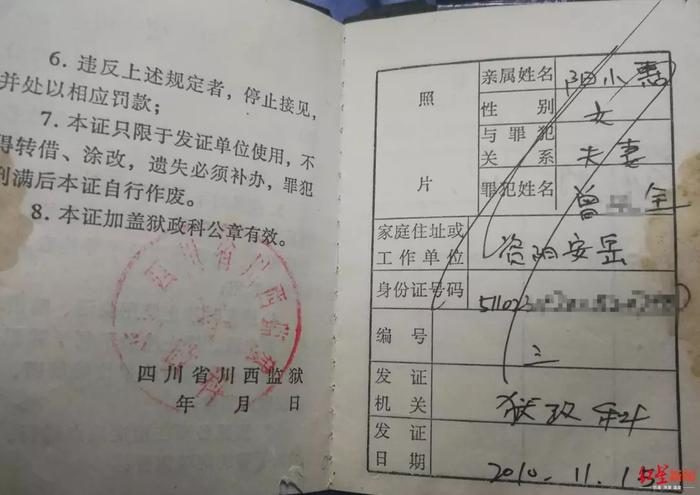 6. 违反上述规定者，停止接见，
并处以相应罚款；
7. 本证只限于发证单位使用，不
得转借、涂改，遗失必须补办，罪犯
刑满后本证自行作废。
8. 本证加盖狱政科公章有效。
四川省川西监狱
年 月 日
照片
亲属姓名 阳小
性别 女
与罪犯关系 夫妻
罪犯姓名 曾 全
家庭住址或工作单位 资阳安岳
身份证号码 51023
编号 2
发证机关 狱政科
发证日期 2010.11.15
红星新闻